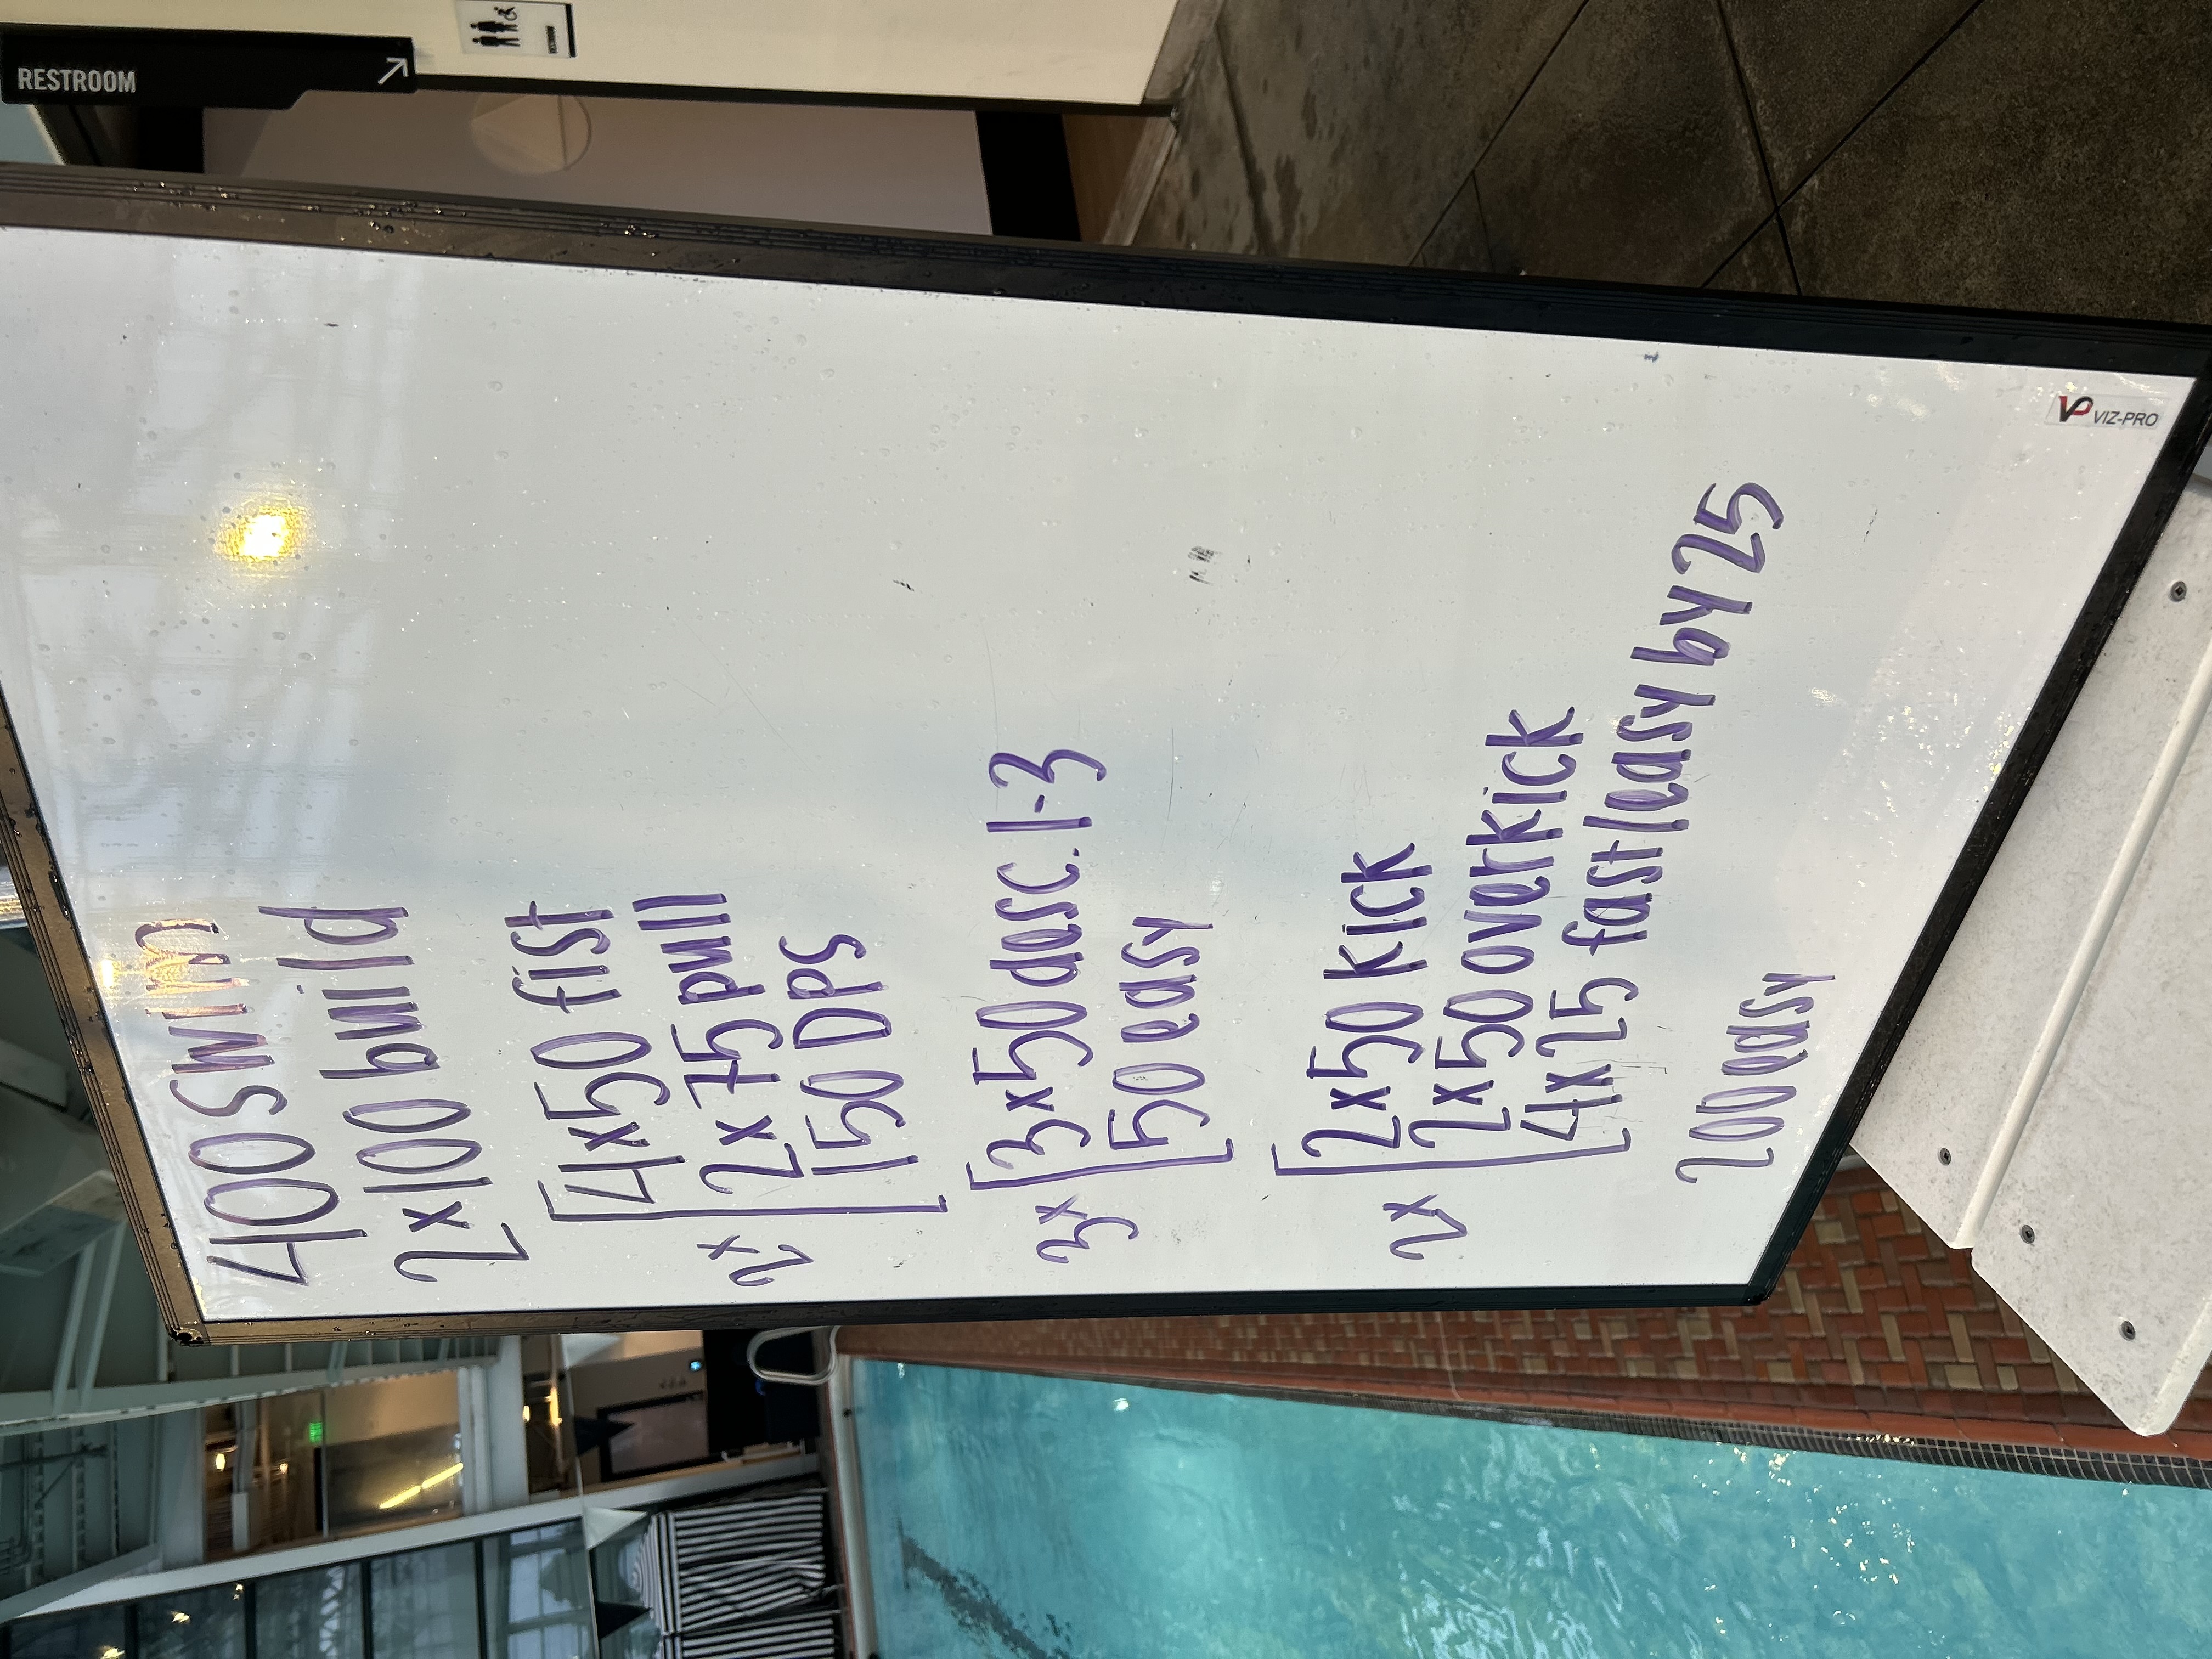 400 swim
2x100 build
2x [4x50 fist
2x75 pull
150 DPS
3x [3x50 desc. 1-3
50 easy
2x [2x50 kick
2x50 overkick
4x25 fast/easy by 25
200 easy
VP VIZ-PRO
RESTROOM
RESTROOM